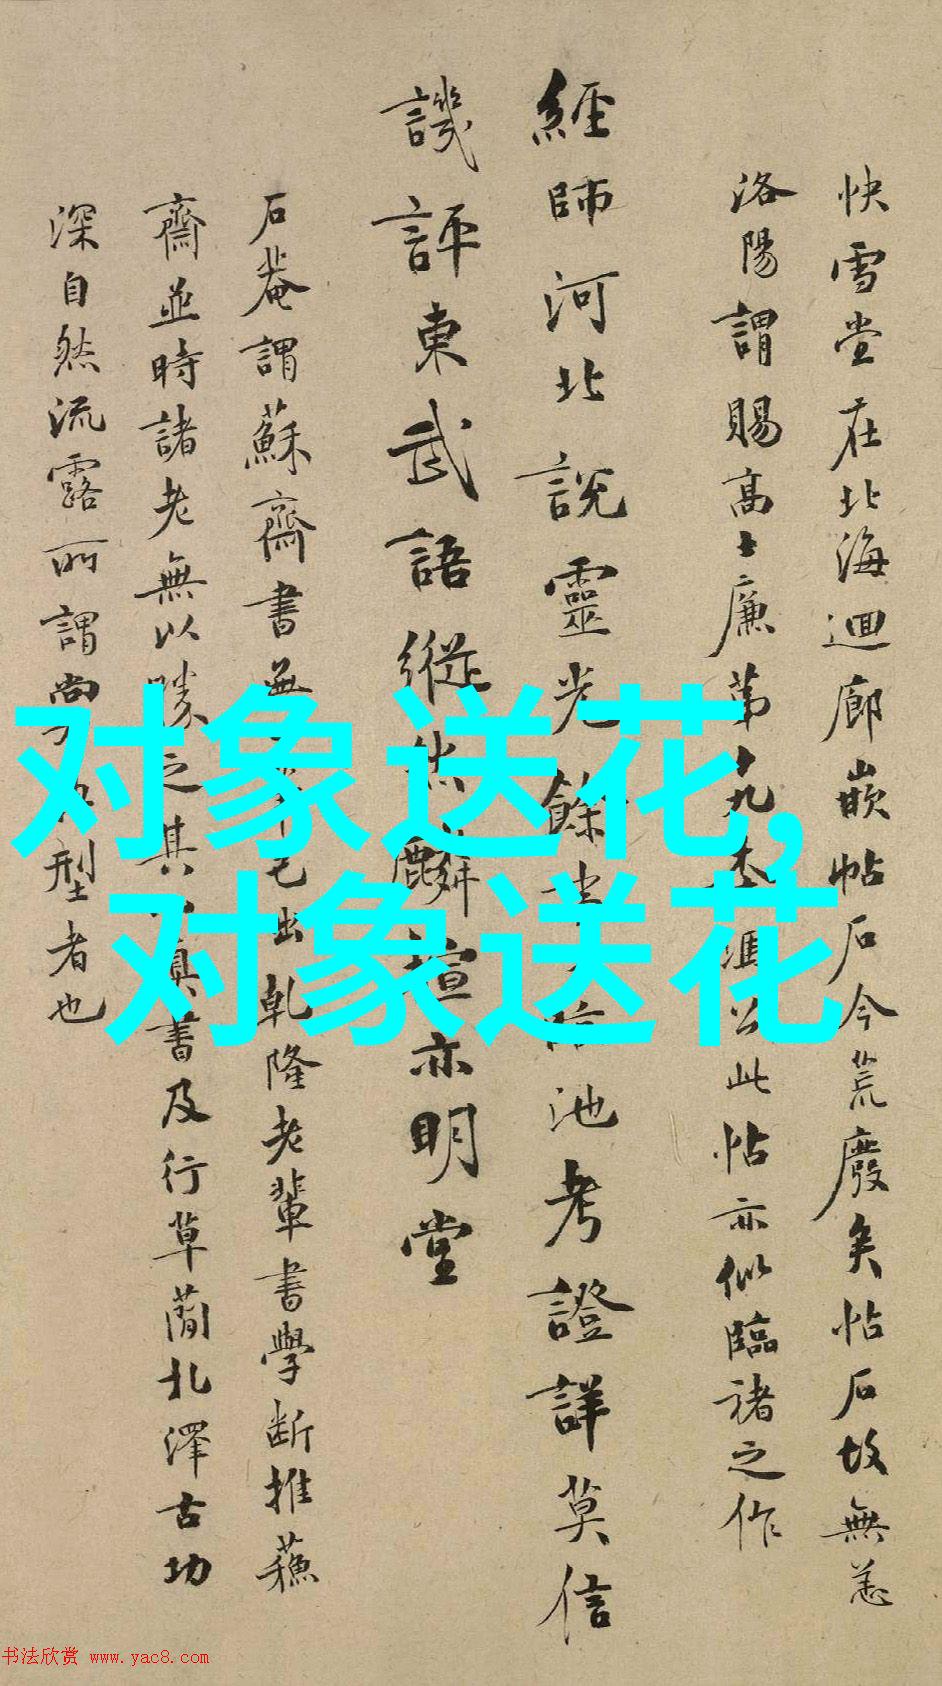 快雪堂在北海迴廊嵌帖石今荒廢矣帖石故無恙
洛陽謂賜高士廉第十九本馮公此帖亦似臨褚之作
經師河北説靈光餘池考證詳莫信
譏評東武語縱然麟楦亦明堂
石菴謂蘇齋書無出乾隆老輩書學斷推蘓
齋並時諸老無以勝之其真書及行草蘭北澤古功
深自然流露所謂尚型者也
对象送花,
对象送花
书法欣赏 www.yac8.com